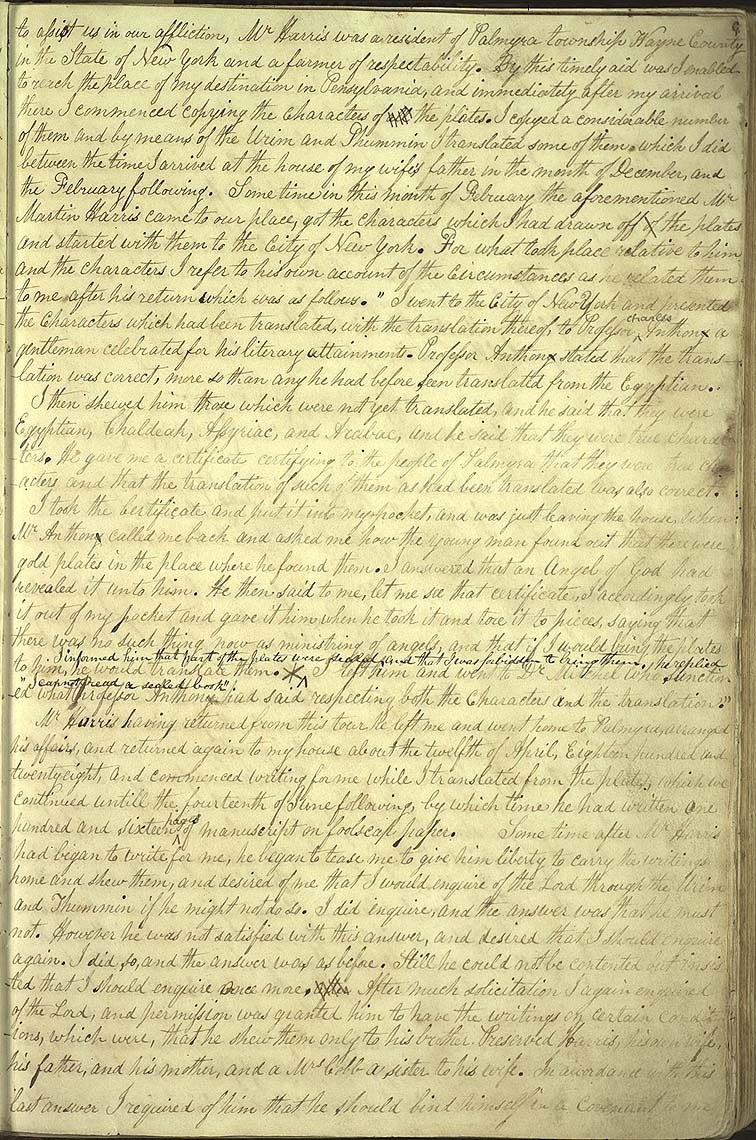 9
to assist us in our affliction, Mr Harris was a resident of Palmyra township Wayne County
in the State of New York and a farmer of respectability. By this timely aid was I enabled
to reach the place of my destination in Pensylvania, and immediately after my arrival
there I commenced copying the characters of the plates. I copyed a considerable number
of them and by means of the Urim and Thummin I translated some of them which I did
between the time I arrived at the house of my wife's father in the month of December, and
the February following. Some time in this month of February the aforementioned Mr
Martin Harris came to our place, got the characters which I had drawn off the plates
and started with them to the City of New York. For what took place relative to him
and the characters I refer to his own account of the circumstances as he related them
to me after his return which was as follows. " I went to the City of New York and presented
the Characters which had been translated, with the translation thereof, to Professor charles Anthony a
gentleman celebrated for his literary attainments. Professor Anthony stated that the trans-
-lation was correct, more so than any he had before seen translated from the Egyptian.
I then shewed him those which were not yet translated, and he said that they were
Egyptian, Chaldeak, Assyriac, and Arabac, and he said that they were true charac-
ters. He gave me a certificate certifying to the people of Palmyra that they were true char-
acters and that the translation of such of them as had been translated was also correct.
I took the Certificate and put it into my pocket, and was just leaving the house, when
Mr Anthony called me back and asked me how the young man found out that there were
gold plates in the place where he found them. I answered that an Angel of God had
revealed it unto him. He then said to me, let me see that certificate, I accordingly took
it out of my pocket and gave it him when he took it and tore it to pieces, saying that
there was no such thing now as ministring of angels, and that if I would bring the plates
I informed him that part of the plates were sealed, and that I was forbidden to bring them, he replied
to him, he would translate them. I left him and went to Dr Mitchel who sanction
"I cannot read a sealed book".
-ed what Professor Anthony had said respecting both the Characters and the translation."
Mr Harris having returned from this tour he left me and went home to Palmyra, arranged
his affairs, and returned again to my house about the twelfth of April, Eighteen hundred and
twentyeight, and commenced writing for me while I translated from the plates, which we
continued untill the fourteenth of June following, by which time he had written one
hundred and sixteen pages of manuscript on foolscap paper. Some time after Mr Harris
had began to write for me, he began to tease me to give him liberty to carry the writings
home and shew them, and desired of me that I would enquire of the Lord through the Urim
and Thummin if he might not do so. I did enquire, and the answer was that he must
not. However he was not satisfied with this answer, and desired that I should enquire
again. I did so, and the answer was as before. Still he could not be contented but insis-
-ted that I should enquire once more. After much solicitation I again enquired
of the Lord, and permission was granted him to have the writings on certain condit-
-ions, which were, that he shew them only to his brother. Preserved Harris, his own wife,
his father, and his mother, and a Mrs Cobb a sister to his wife. In acordance with this
last answer I required of him that he should bind himself in a covenant to me